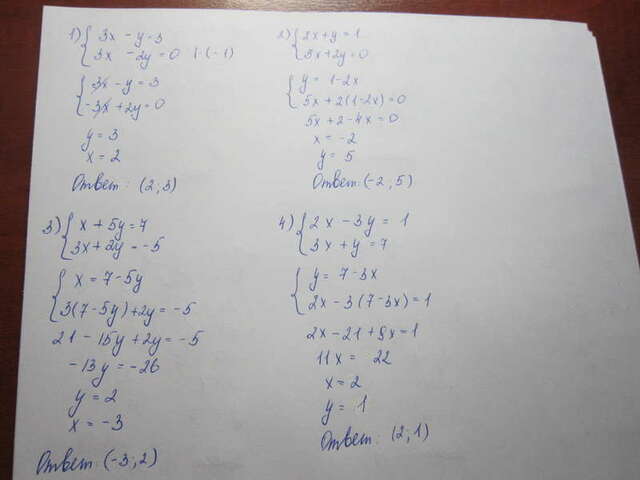 1) { 3x - y = 3
3x - 2y = 0 | ·(-1)
{ 3x - y = 3
-3x + 2y = 0
y = 3
x = 2
Ответ: (2; 3)
2) { 2x + y = 1
5x + 2y = 0
{ y = 1 - 2x
5x + 2(1 - 2x) = 0
5x + 2 - 4x = 0
x = -2
y = 5
Ответ: (-2; 5)
3) { x + 5y = 7
3x + 2y = -5
{ x = 7 - 5y
3(7 - 5y) + 2y = -5
21 - 15y + 2y = -5
-13y = -26
y = 2
x = -3
Ответ: (-3; 2)
4) { 2x - 3y = 1
3x + y = 7
{ y = 7 - 3x
2x - 3(7 - 3x) = 1
2x - 21 + 9x = 1
11x = 22
x = 2
y = 1
Ответ: (2; 1)